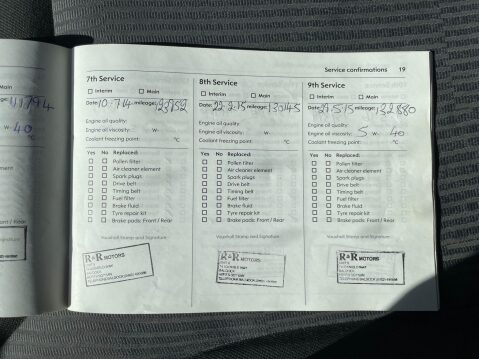 Service confirmations 19
Main
W- 40
°C
ont / Rear
7th Service
Interim Main
Date: mileage:
Engine oil quality:
Engine oil viscosity: W-
Coolant freezing point: °C
Yes No Replaced:
Pollen filter
Air cleaner element
Spark plugs
Drive belt
Timing belt
Fuel filter
Brake fluid
Tyre repair kit
Brake pads: Front / Rear
Vauxhall Stamp and Signature
R&R MOTORS
8th Service
Interim Main
Date: 22.2.15 mileage: 130145
Engine oil quality:
Engine oil viscosity: W-
Coolant freezing point: °C
Yes No Replaced:
Pollen filter
Air cleaner element
Spark plugs
Drive belt
Timing belt
Fuel filter
Brake fluid
Tyre repair kit
Brake pads: Front / Rear
Vauxhall Stamp and Signature
R&R MOTORS
9th Service
Interim Main
Date: 29.5.15 mileage: 132880
Engine oil quality:
Engine oil viscosity: 5 W- 40
Coolant freezing point: °C
Yes No Replaced:
Pollen filter
Air cleaner element
Spark plugs
Drive belt
Timing belt
Fuel filter
Brake fluid
Tyre repair kit
Brake pads: Front / Rear
Vauxhall Stamp and Signature
R&R MOTORS